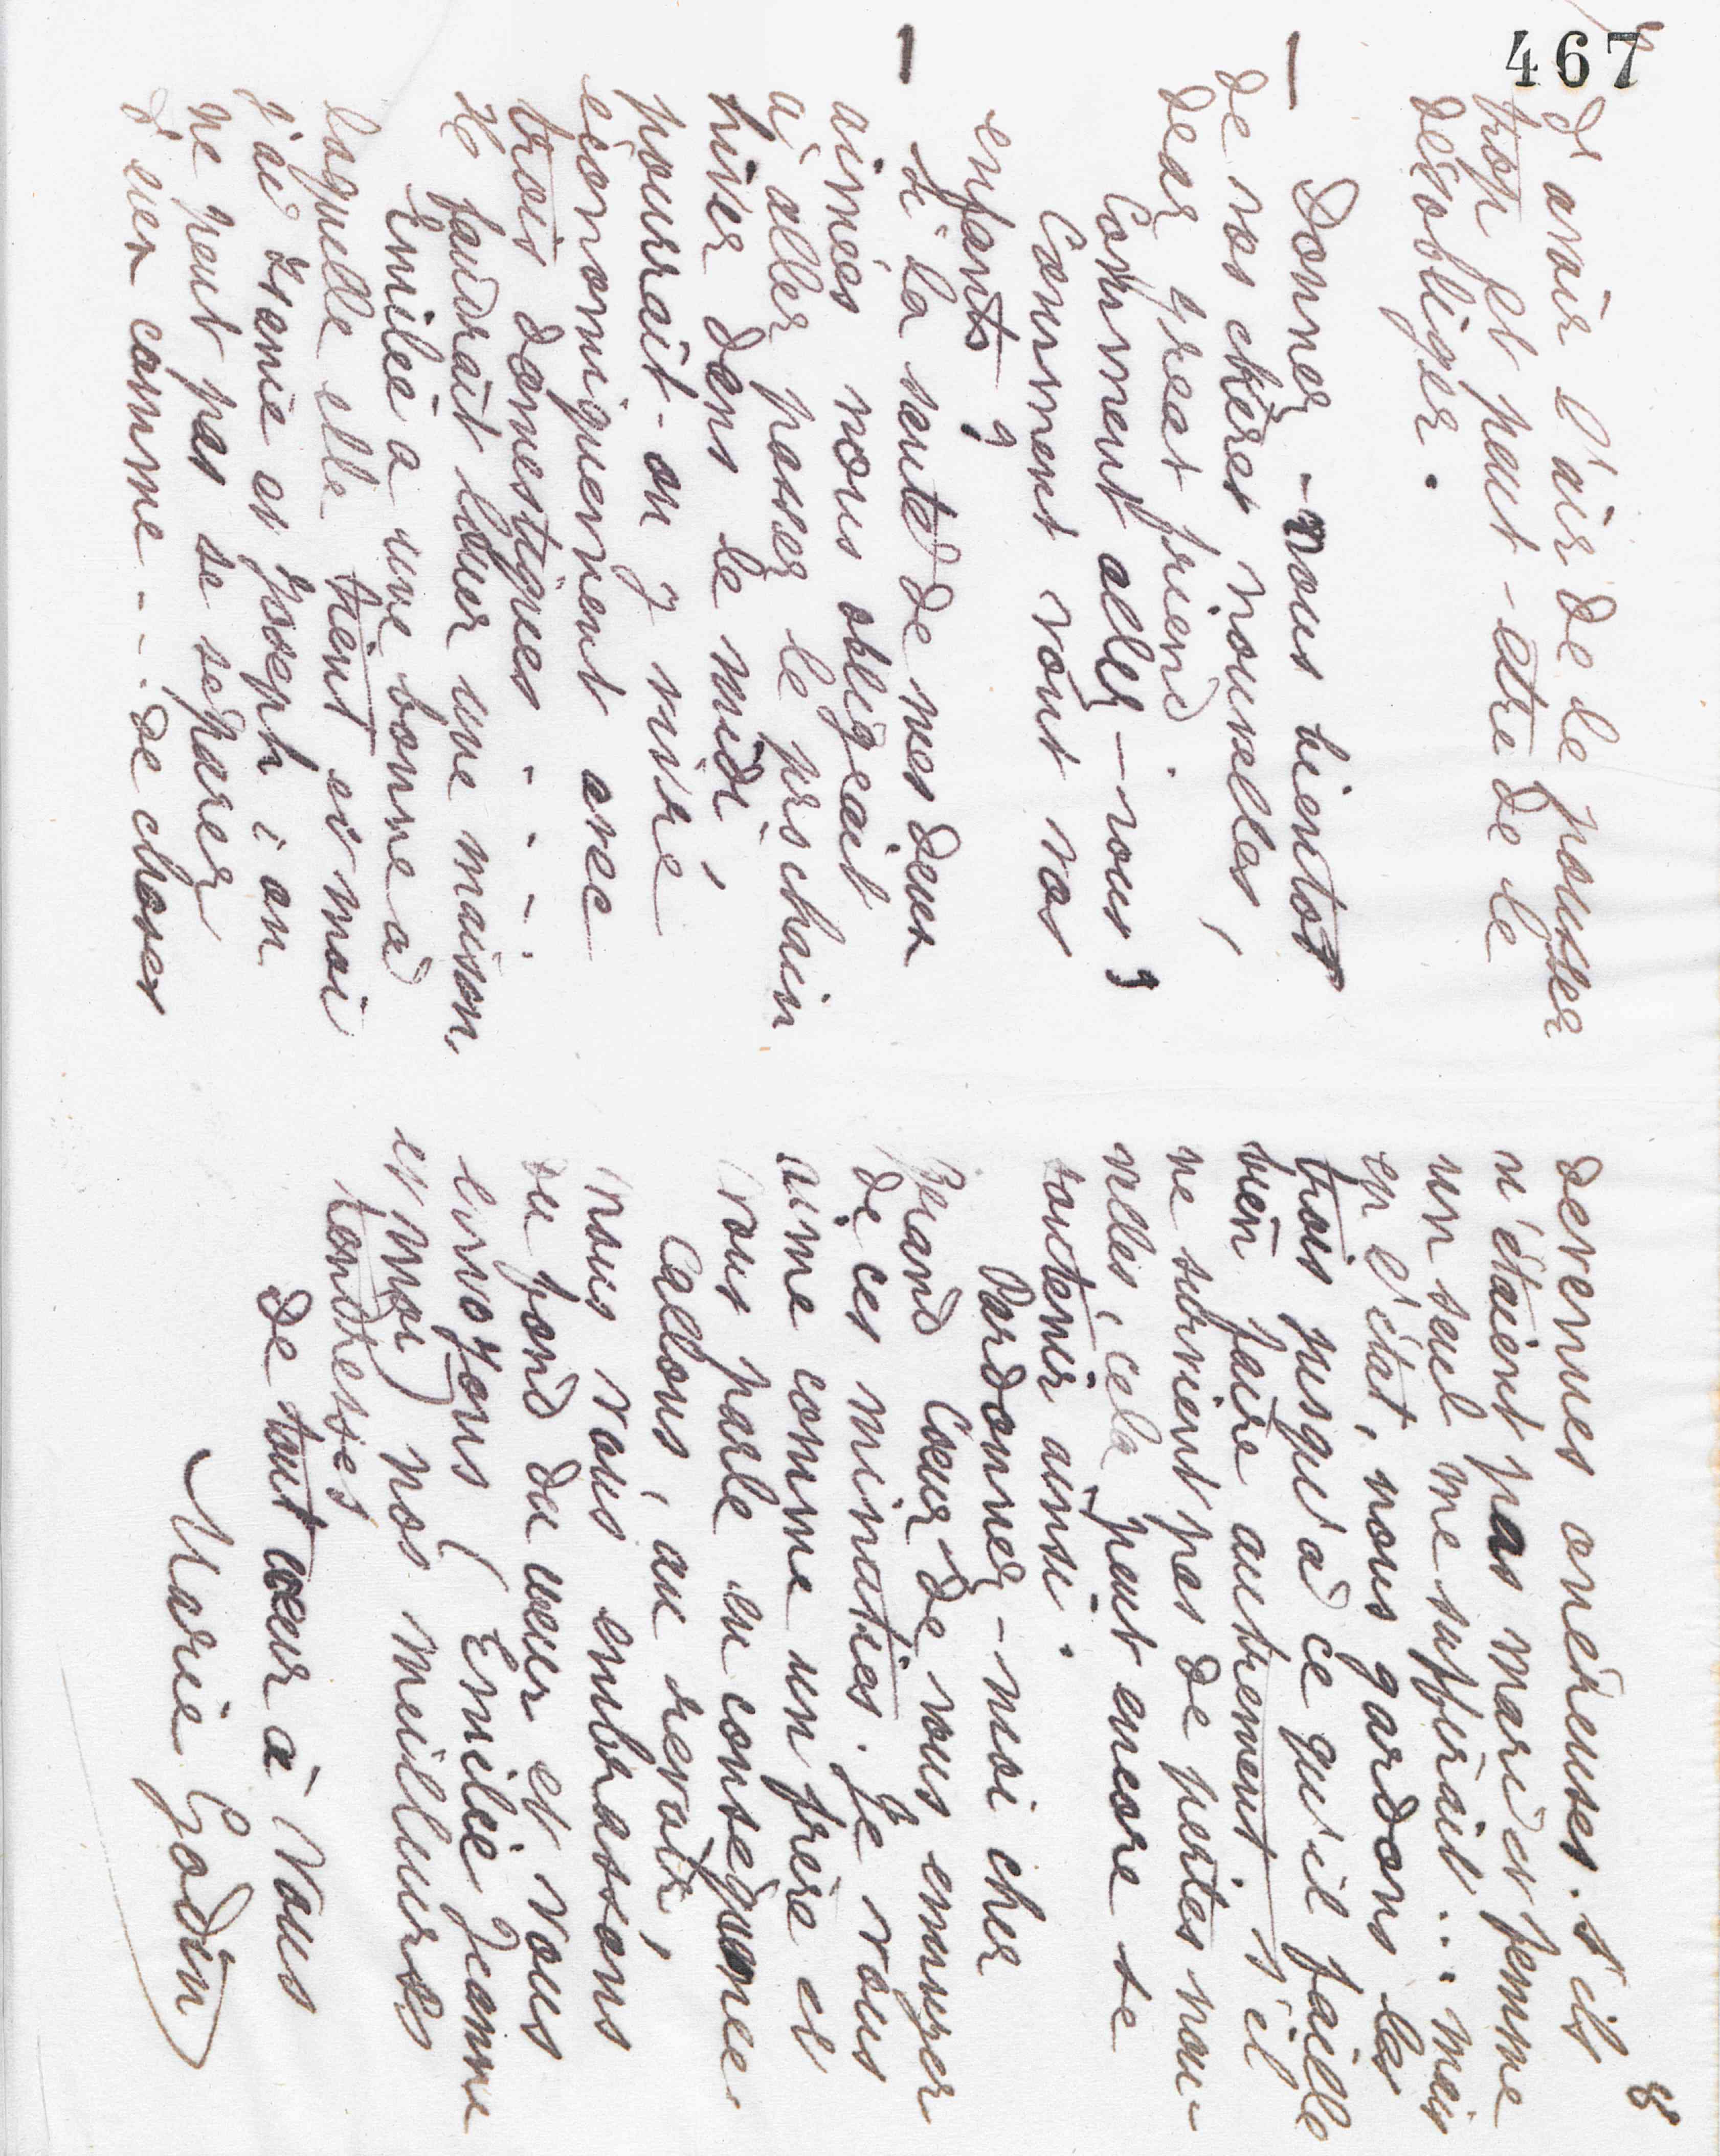 467
d'avoir l'air de le pousser
trop et peut-être de le
désobliger.
Donnez-nous bientôt
de vos chères nouvelles,
dear great friend.
Comment allez-vous ?
Comment vont vos
enfants ?
Si la santé de mes deux
aimées nous obligeait
à aller passer le prochain
hiver dans le midi,
pourrait-on y vivre
économiquement avec
trois domestiques ....
Il faudrait louer une maison,
Emilie a une bonne à
laquelle elle tient et moi
j'ai et Joseph ; on
ne peut pas se séparer
d'eux comme ... de choses
8
devenues onéreuses. S'ils
n'étaient pas mari et femme
un seul me suffirait ... mais
en l'état, nous gardons les
trois jusqu'à ce qu'il faille
bien faire autrement s'il
ne survient pas de pertes nou-
velles, cela peut encore se
soutenir ainsi.
Pardonnez-moi cher
grand Cœur de vous ennuyer
de ces minuties. Je vous
aime comme un frère et
vous parle en conséquence.
Allons, au revoir,
nous vous embrassons
du fond du cœur et vous
envoyons (Emilie Jeanne
et moi) nos meilleures
tendresses
De tout cœur à Vous
Marie Godin